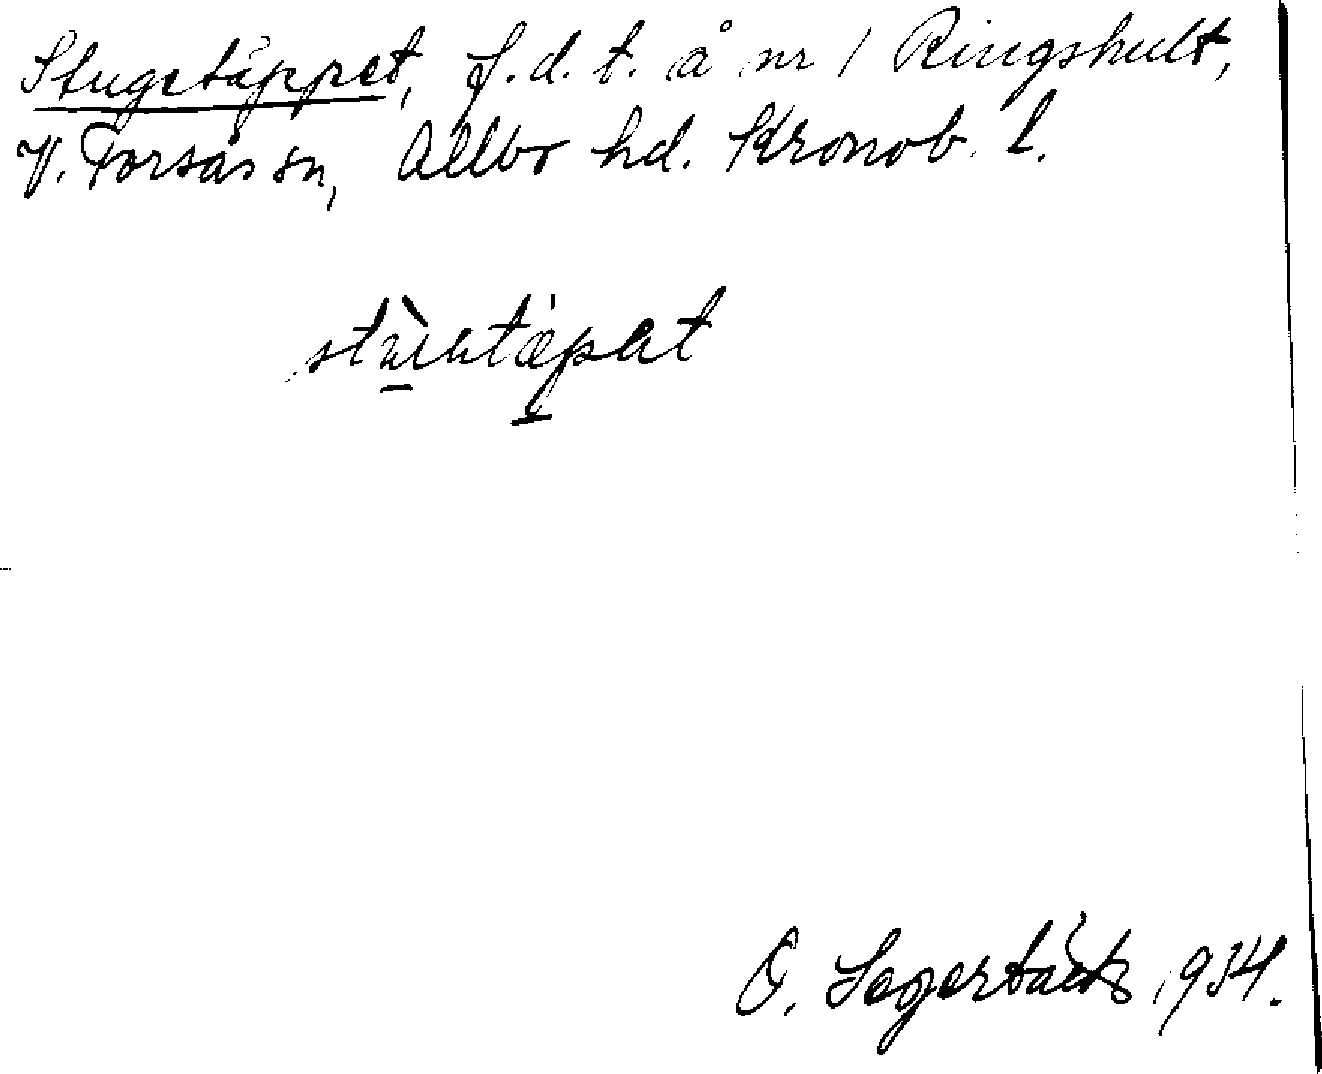 Stugetäppet, f.d.t. å nr 1 Ringshult,
V. Torsås sn, Allbo hd. Kronob. l.
O. Segerbäck 1934.